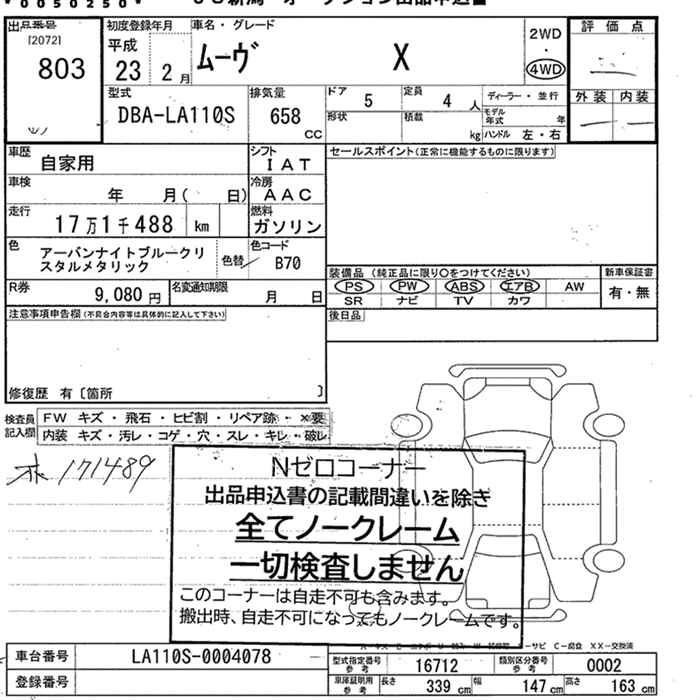 *0050250*
出品番号
[2072]
803
初度登録年月
平成
23 2月
車名・グレード
ムーヴ X
2WD
・
4WD
評価点
外装 内装
型式
DBA-LA110S
排気量
658
cc
ドア 5
定員 4 人
形状
積載 kg
ディーラー・並行
モデル年式 年
ハンドル 左・右
車歴 自家用
シフト
IAT
車検 年 月( 日)
冷房
AAC
走行 17万1千488 km
燃料
ガソリン
色 アーバンナイトブルークリ
スタルメタリック
色替
色コード
B70
R券 9,080 円
名変通知期限
月 日
セールスポイント(正常に機能するものに限ります)
装備品 (純正品に限り○をつけてください)
PS PW ABS エアB AW
SR ナビ TV カワ
新車保証書
有・無
後日品
注意事項申告欄(不具合内容等は具体的に記入して下さい)
修復歴 有〔箇所 〕
検査員
記入欄
FW キズ・飛石・ヒビ割・リペア跡・×要
内装 キズ・汚レ・コゲ・穴・スレ・キレ・破レ
171489
Nゼロコーナー
出品申込書の記載間違いを除き
全てノークレーム
一切検査しません
このコーナーは自走不可も含みます。
搬出時、自走不可になってもノークレームです。
車台番号 LA110S-0004078
登録番号
型式指定番号
参考
16712
類別区分番号
参考
0002
車庫証明用
参考
長さ 339 cm
幅 147 cm
高さ 163 cm